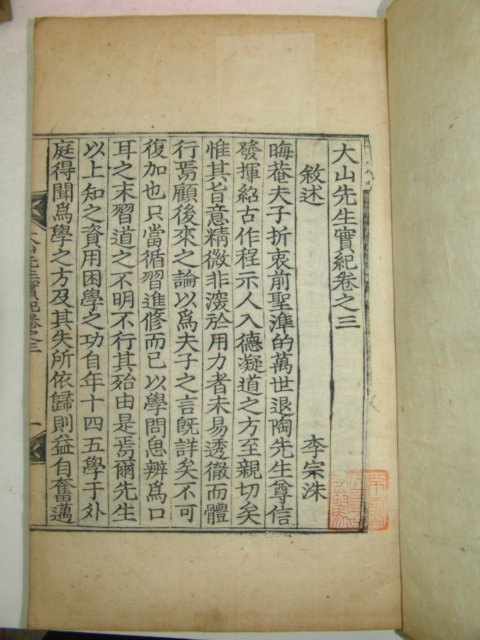 大山先生實紀卷之三
敍述 李宗洙
晦菴夫子折衷前聖準的萬世退陶先生尊信
發揮紹古作程示人入德凝道之方至親切矣
惟其旨意精微非深於用力者未易透徹而體
行焉顧後來之論以爲夫子之言旣詳矣不可
復加也只當循習進修而已以學問思辨爲口
耳之末習道之不明不行其殆由是焉爾先生
以上知之資用困學之功自年十四五學于外
庭得聞爲學之方及其失所依歸則益自奮邁
大山先生實紀卷之三 一